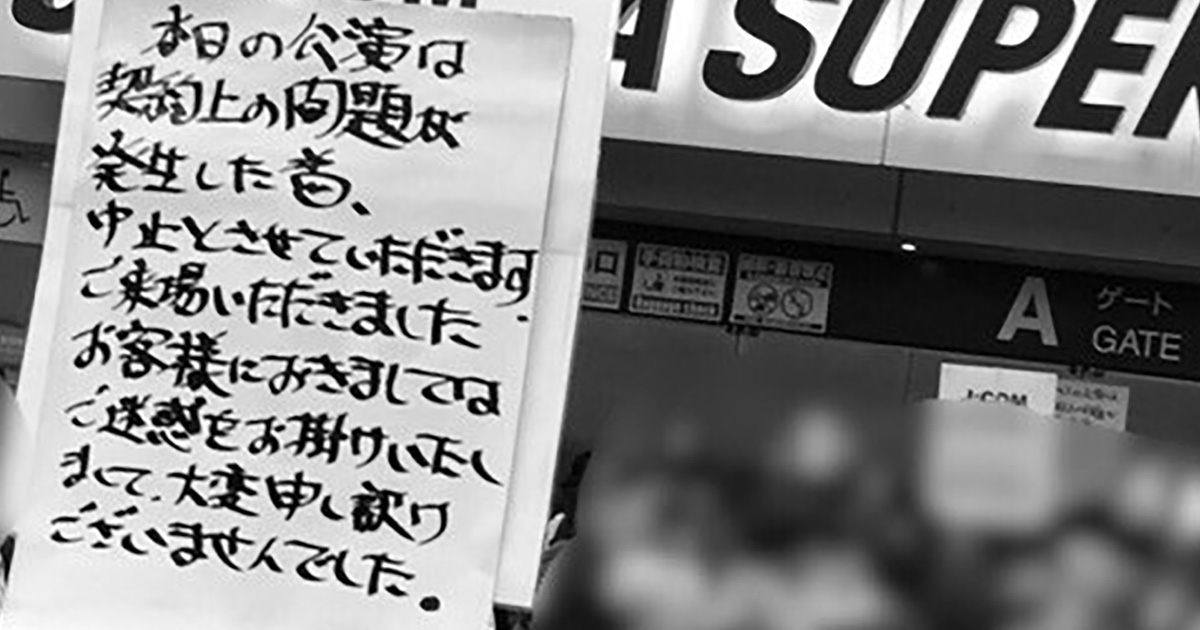 本日の公演は
契約上の問題が
発生した為、
中止とさせていただきます.
ご来場いただきました
お客様におきましては
ご迷惑をお掛けいたし
まして、大変申し訳け
ございませんでした。
A SUPER
A ゲート
GATE
J:COM